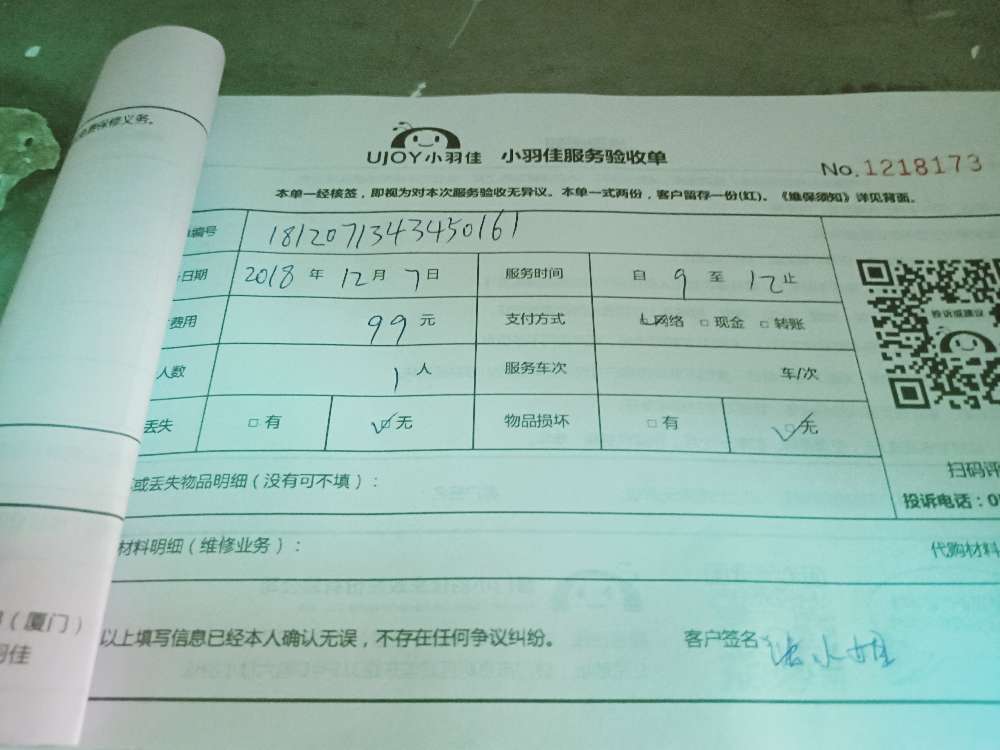 免费保修义务。
UJOY小羽佳 小羽佳服务验收单
No.1218173
本单一经核签，即视为对本次服务验收无异议。本单一式两份，客户留存一份(红)。《维保须知》详见背面。
编号 181207134345016​1
日期 2018 年 12 月 7 日 服务时间 自 9 至 12 止
费用 99 元 支付方式 网络 □ 现金 □ 转账
投诉或建议
人数 1 人 服务车次 车/次
丢失 □ 有 ☑ 无 物品损坏 □ 有 ☑ 无
扫码评
或丢失物品明细（没有可不填）：
投诉电话：0
材料明细（维修业务）： 代购材料
（厦门）
羽佳
以上填写信息已经本人确认无误，不存在任何争议纠纷。 客户签名